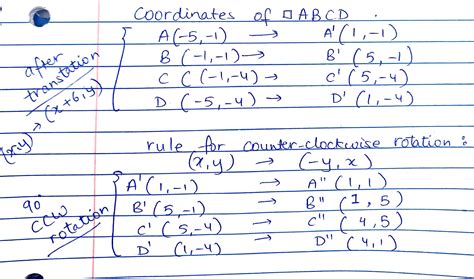 Coordinates of □ABCD.
after translation
(x,y) → (x+6,y)
A(-5,-1) → A'(1,-1)
B(-1,-1) → B'(5,-1)
C (C(-1,-4) → C'(5,-4)
D(-5,-4) → D'(1,-4)
rule for counter-clockwise rotation:
(x,y) → (-y,x)
90° CCW rotation
A'(1,-1) → A"(1,1)
B'(5,-1) → B"(1,5)
C'(5,-4) → C"(4,5)
D'(1,-4) → D"(4,1)